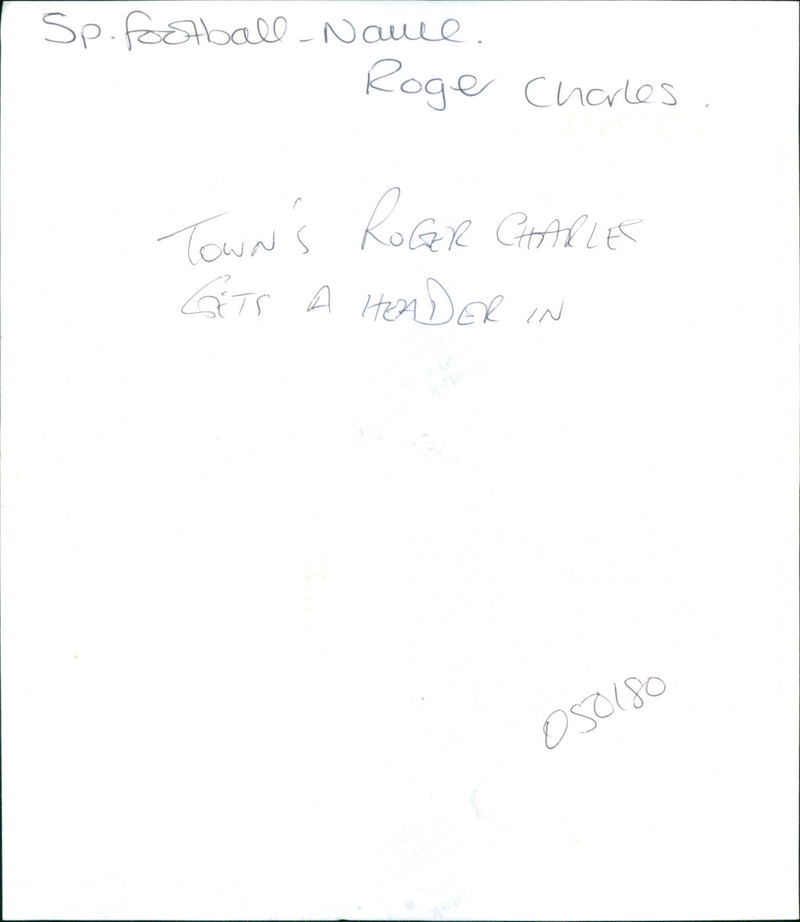 Sp. football - Name.
Roger Charles.
TOWN'S ROGER CHARLES
GETS A HEADER IN
050180